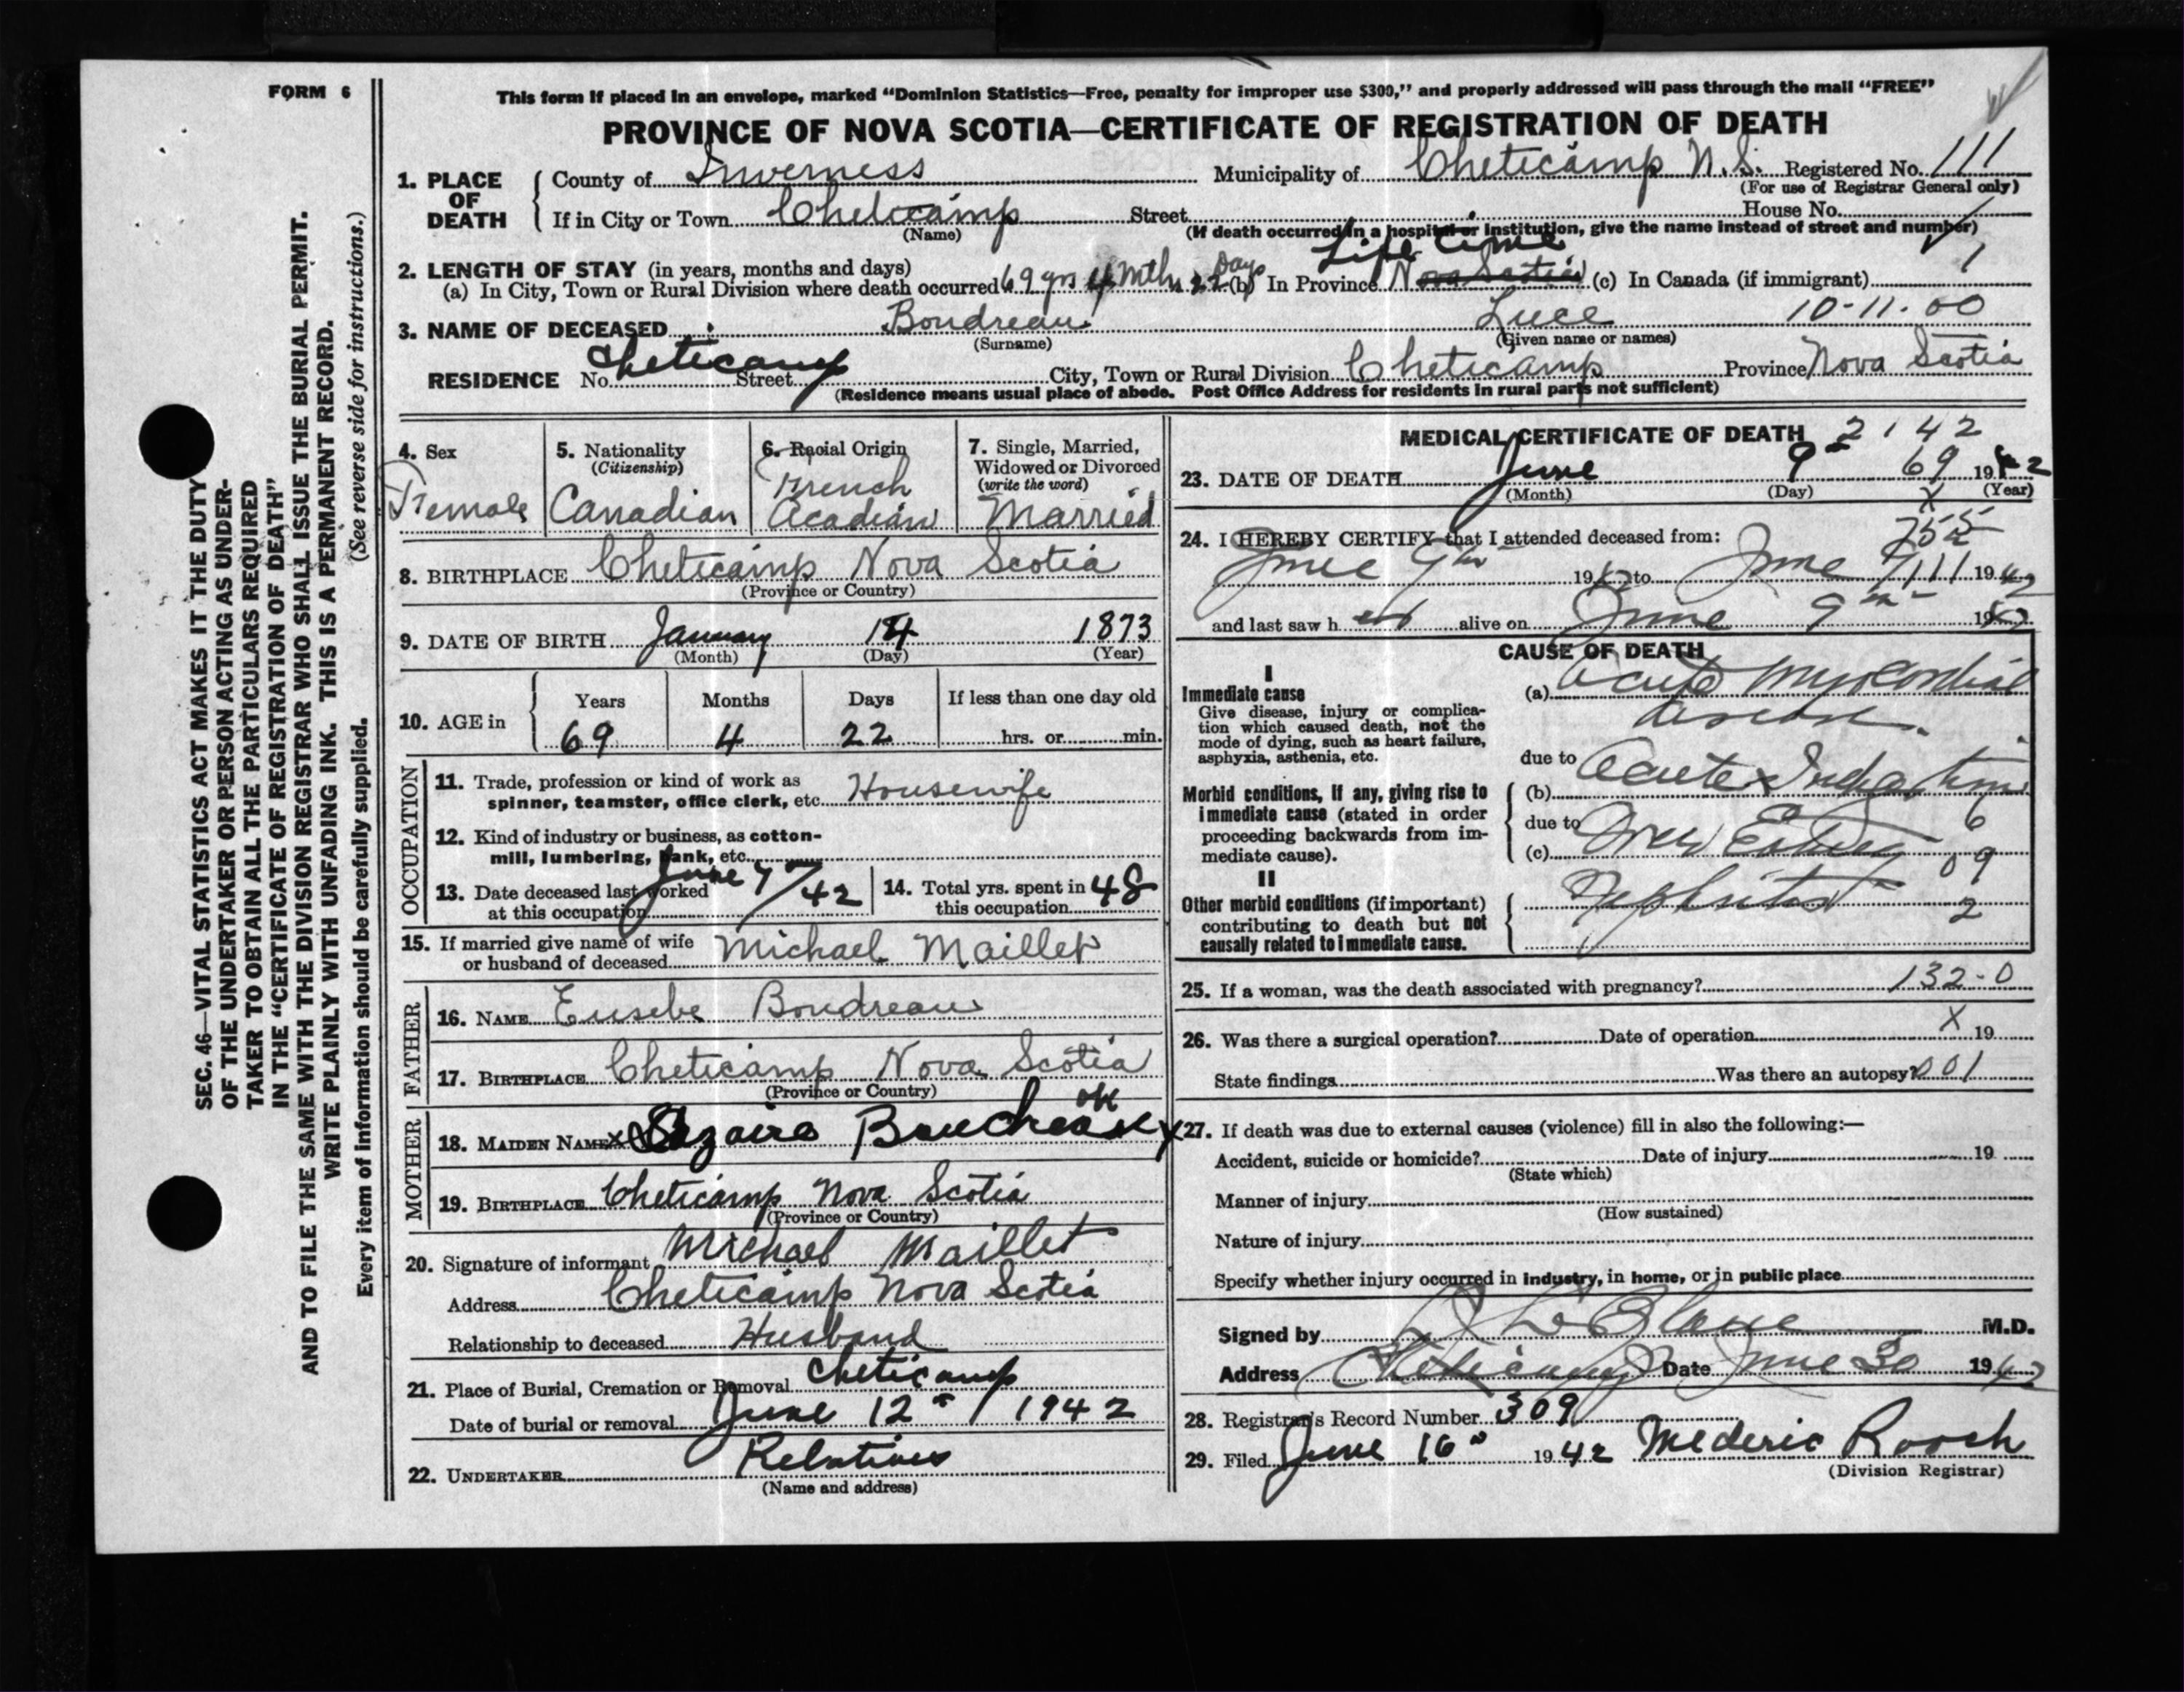 FORM 6
This form if placed in an envelope, marked "Dominion Statistics—Free, penalty for improper use $300," and properly addressed will pass through the mail "FREE"
PROVINCE OF NOVA SCOTIA—CERTIFICATE OF REGISTRATION OF DEATH
1. PLACE OF DEATH
County of Inverness Municipality of Cheticamp N.S. Registered No. 111
(For use of Registrar General only)
If in City or Town Cheticamp Street House No.
(Name) (If death occurred in a hospital or institution, give the name instead of street and number)
Life time
2. LENGTH OF STAY (in years, months and days)
(a) In City, Town or Rural Division where death occurred 69 yrs 4 Mths 22 Days (b) In Province Nova Scotia (c) In Canada (if immigrant) 1
3. NAME OF DECEASED Boudreau Luce 10-11-00
(Surname) (Given name or names)
RESIDENCE No. Cheticamp Street City, Town or Rural Division Cheticamp Province Nova Scotia
(Residence means usual place of abode. Post Office Address for residents in rural parts not sufficient)
4. Sex Female
5. Nationality (Citizenship) Canadian
6. Racial Origin French Acadian
7. Single, Married, Widowed or Divorced (write the word) Married
8. BIRTHPLACE Cheticamp Nova Scotia
(Province or Country)
9. DATE OF BIRTH January 1873
(Month) (Day) (Year)
10. AGE in Years Months Days If less than one day old
69 4 22 hrs. or min.
OCCUPATION
11. Trade, profession or kind of work as spinner, teamster, office clerk, etc. Housewife
12. Kind of industry or business, as cotton-mill, lumbering, bank, etc.
13. Date deceased last worked at this occupation June 7/42
14. Total yrs. spent in this occupation 48
15. If married give name of wife or husband of deceased Michael Maillet
FATHER
16. NAME Eusebe Boudreau
17. BIRTHPLACE Cheticamp Nova Scotia
(Province or Country)
MOTHER
18. MAIDEN NAME Boudreau ok
19. BIRTHPLACE Cheticamp Nova Scotia
(Province or Country)
20. Signature of informant Michael Maillet
Address Cheticamp Nova Scotia
Relationship to deceased Husband
21. Place of Burial, Cremation or Removal Cheticamp
Date of burial or removal June 12 / 1942
22. UNDERTAKER Relatives
(Name and address)
MEDICAL CERTIFICATE OF DEATH 2142
23. DATE OF DEATH June 9 69 1942
(Month) (Day) (Year)
X
24. I HEREBY CERTIFY that I attended deceased from: 755
June 9th 1942 to June 9 111 1942
and last saw h er alive on June 9 1942
CAUSE OF DEATH
I
Immediate cause
Give disease, injury or complication which caused death, not the mode of dying, such as heart failure, asphyxia, asthenia, etc.
(a) Acute Myocardial disease.
due to
Morbid conditions, if any, giving rise to immediate cause (stated in order proceeding backwards from immediate cause).
(b) Acute Indigestion
due to 6
(c) Over Eating 09
II
Other morbid conditions (if important) contributing to death but not causally related to immediate cause.
Nephritis 2
25. If a woman, was the death associated with pregnancy? 132-0
26. Was there a surgical operation? Date of operation X 19
State findings Was there an autopsy? 001
27. If death was due to external causes (violence) fill in also the following:—
Accident, suicide or homicide? Date of injury 19
(State which)
Manner of injury
(How sustained)
Nature of injury
Specify whether injury occurred in industry, in home, or in public place
Signed by LeBlanc M.D.
Address Cheticamp Date June 30 1942
28. Registrar's Record Number 309
29. Filed June 16 1942 Mederic Roach
(Division Registrar)
SEC. 46—VITAL STATISTICS ACT MAKES IT THE DUTY
OF THE UNDERTAKER OR PERSON ACTING AS UNDER-
TAKER TO OBTAIN ALL THE PARTICULARS REQUIRED
IN THE "CERTIFICATE OF REGISTRATION OF DEATH"
AND TO FILE THE SAME WITH THE DIVISION REGISTRAR WHO SHALL ISSUE THE BURIAL PERMIT.
WRITE PLAINLY WITH UNFADING INK. THIS IS A PERMANENT RECORD.
Every item of information should be carefully supplied. (See reverse side for instructions.)